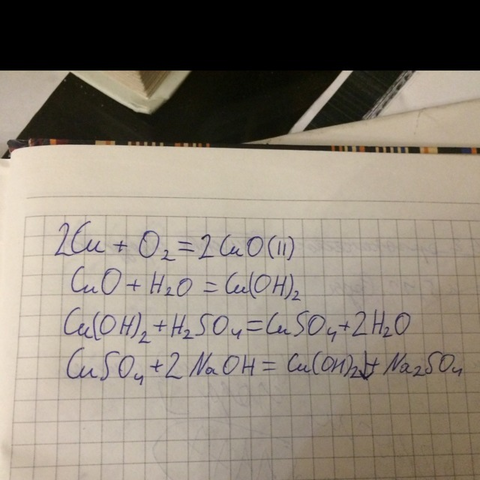 2Cu + O₂ = 2CuO(II)
CuO + H₂O = Cu(OH)₂
Cu(OH)₂ + H₂SO₄ = CuSO₄ + 2H₂O
CuSO₄ + 2NaOH = Cu(OH)₂↓ + Na₂SO₄